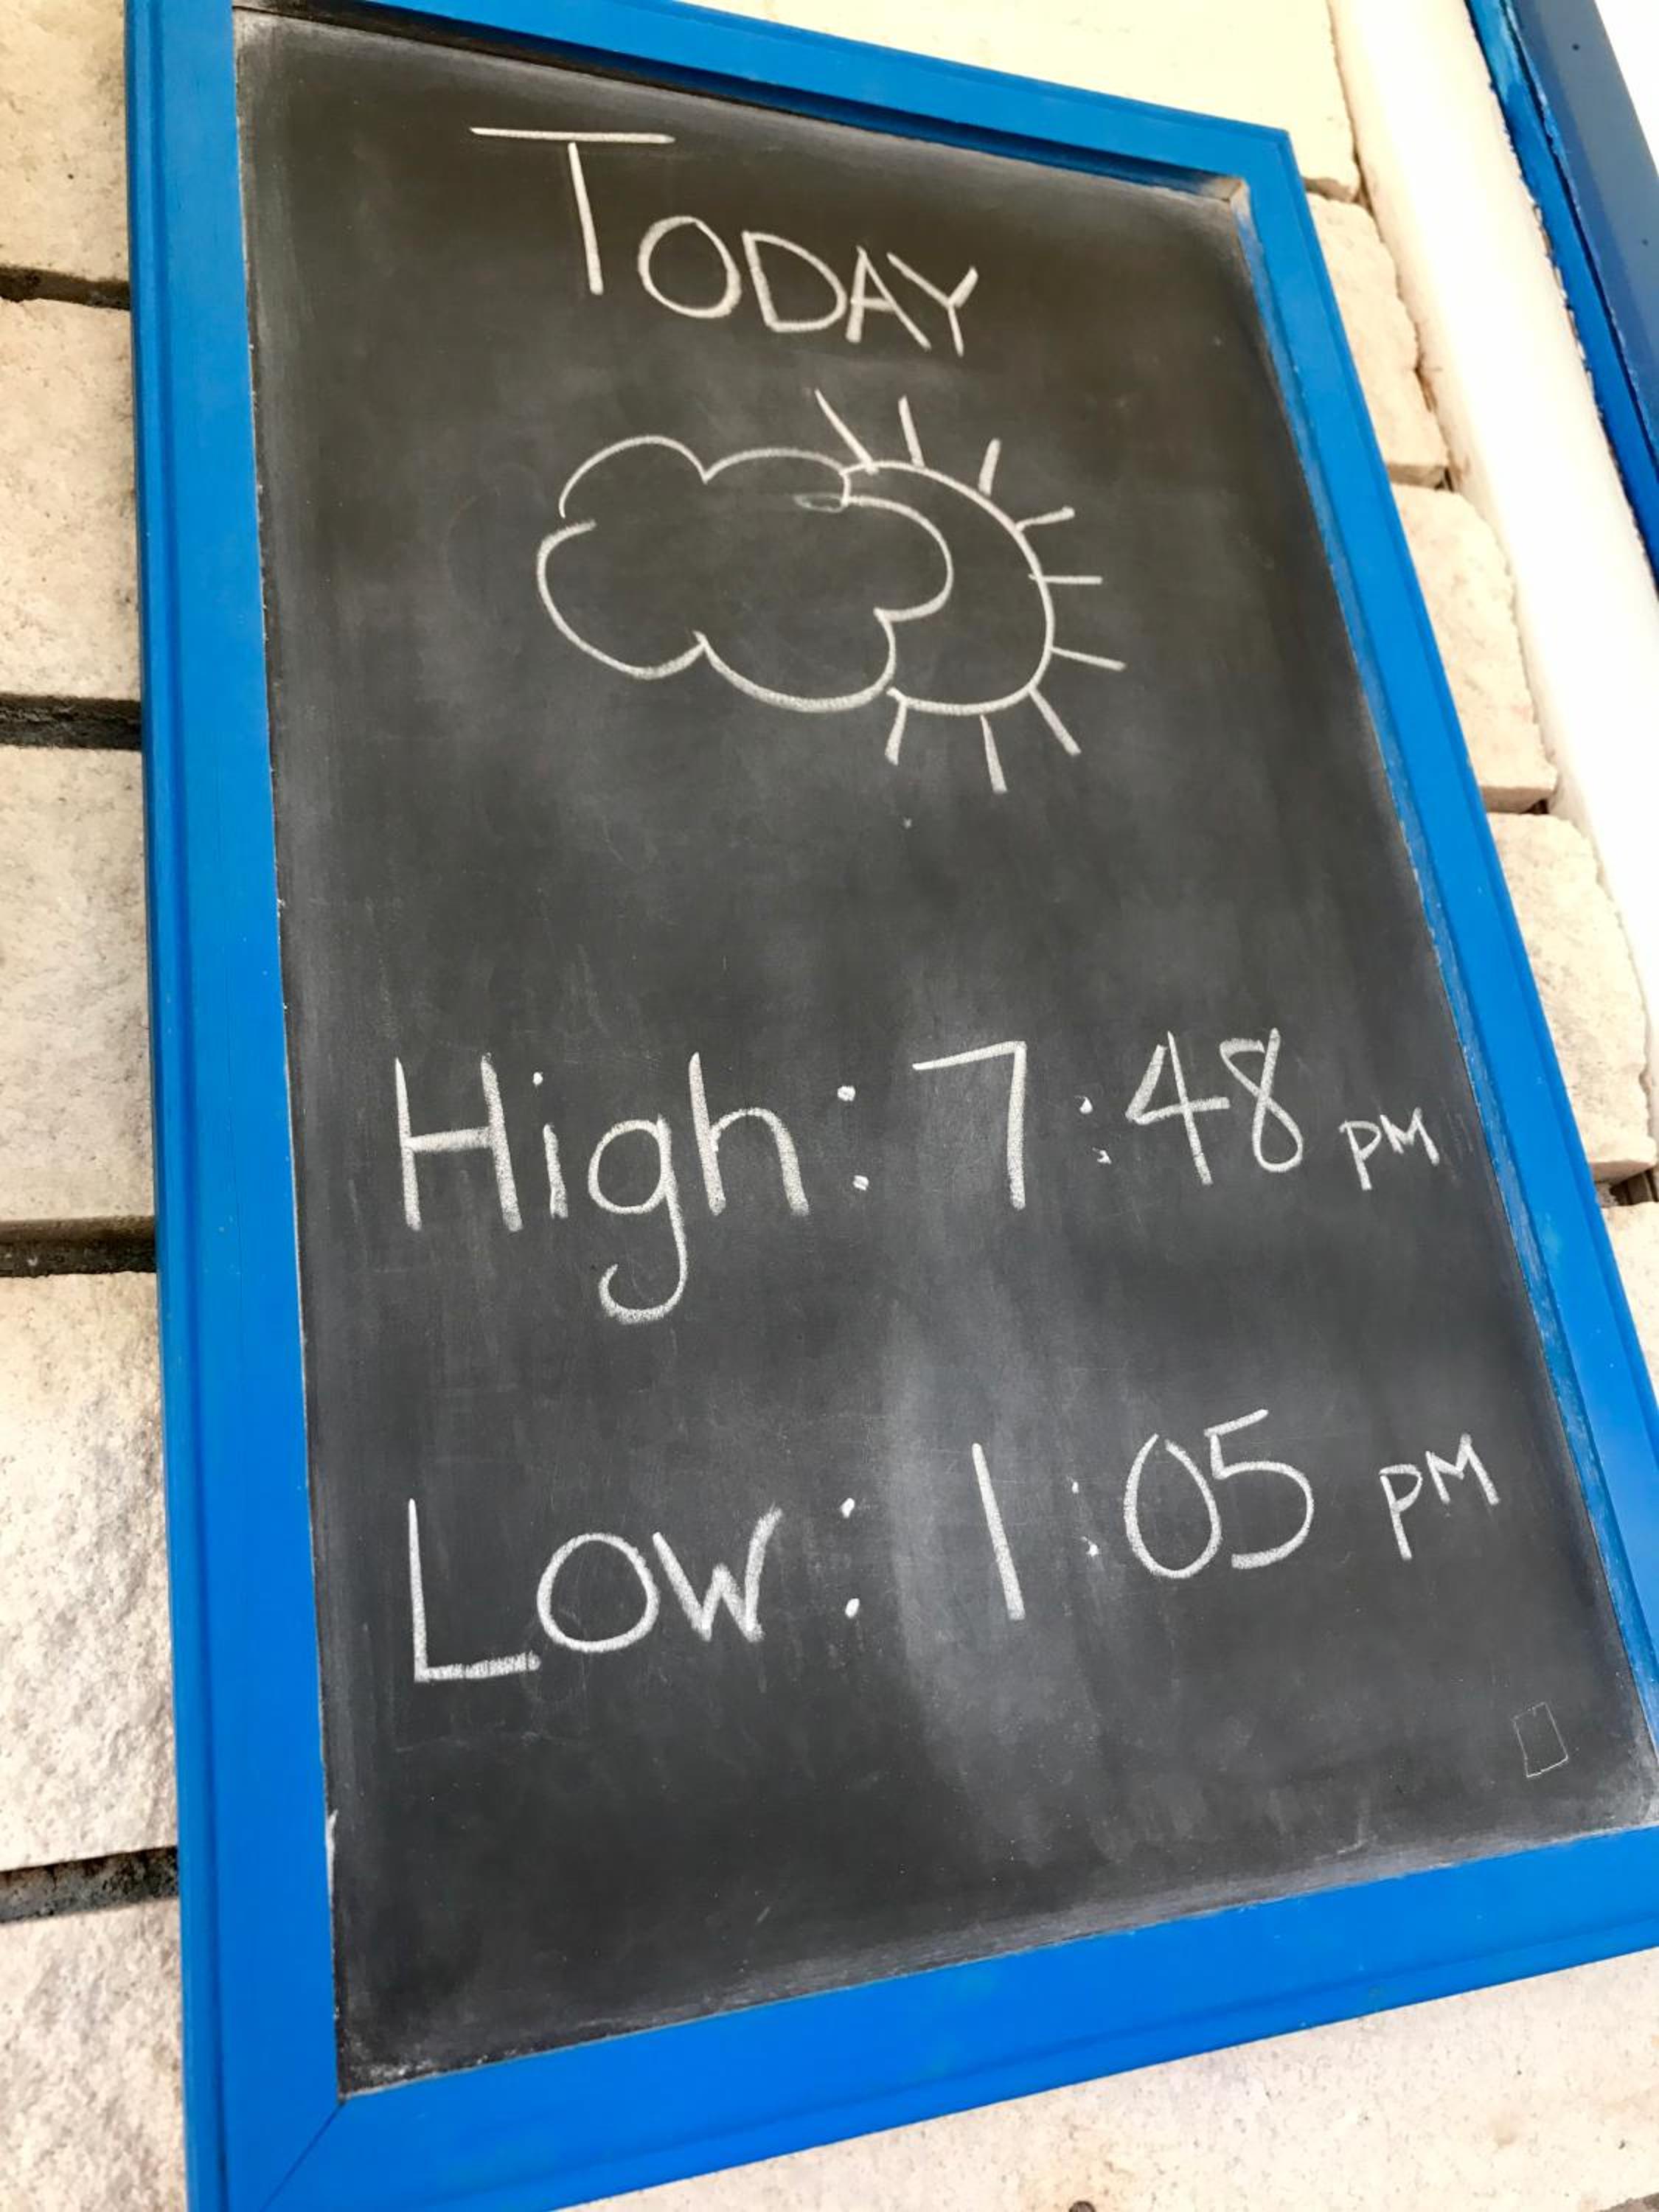 TODAY
High: 7:48 PM
LOW: 1:05 PM